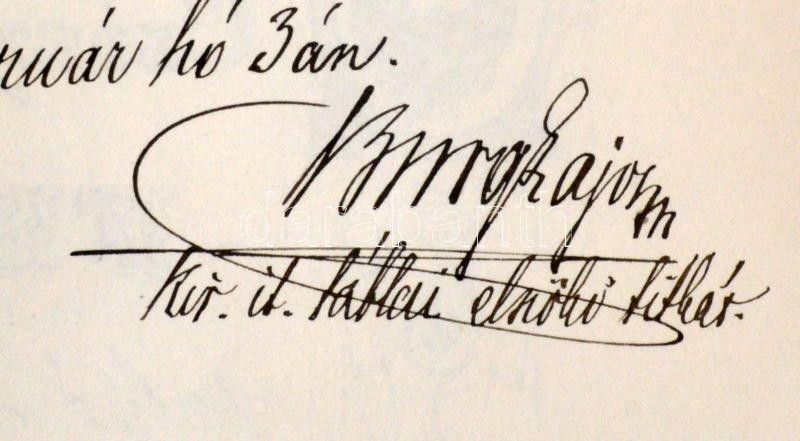 ruár hó 3án.
Burg Lajos m
darabanth
Kir. it. táblai elnöki titkár.